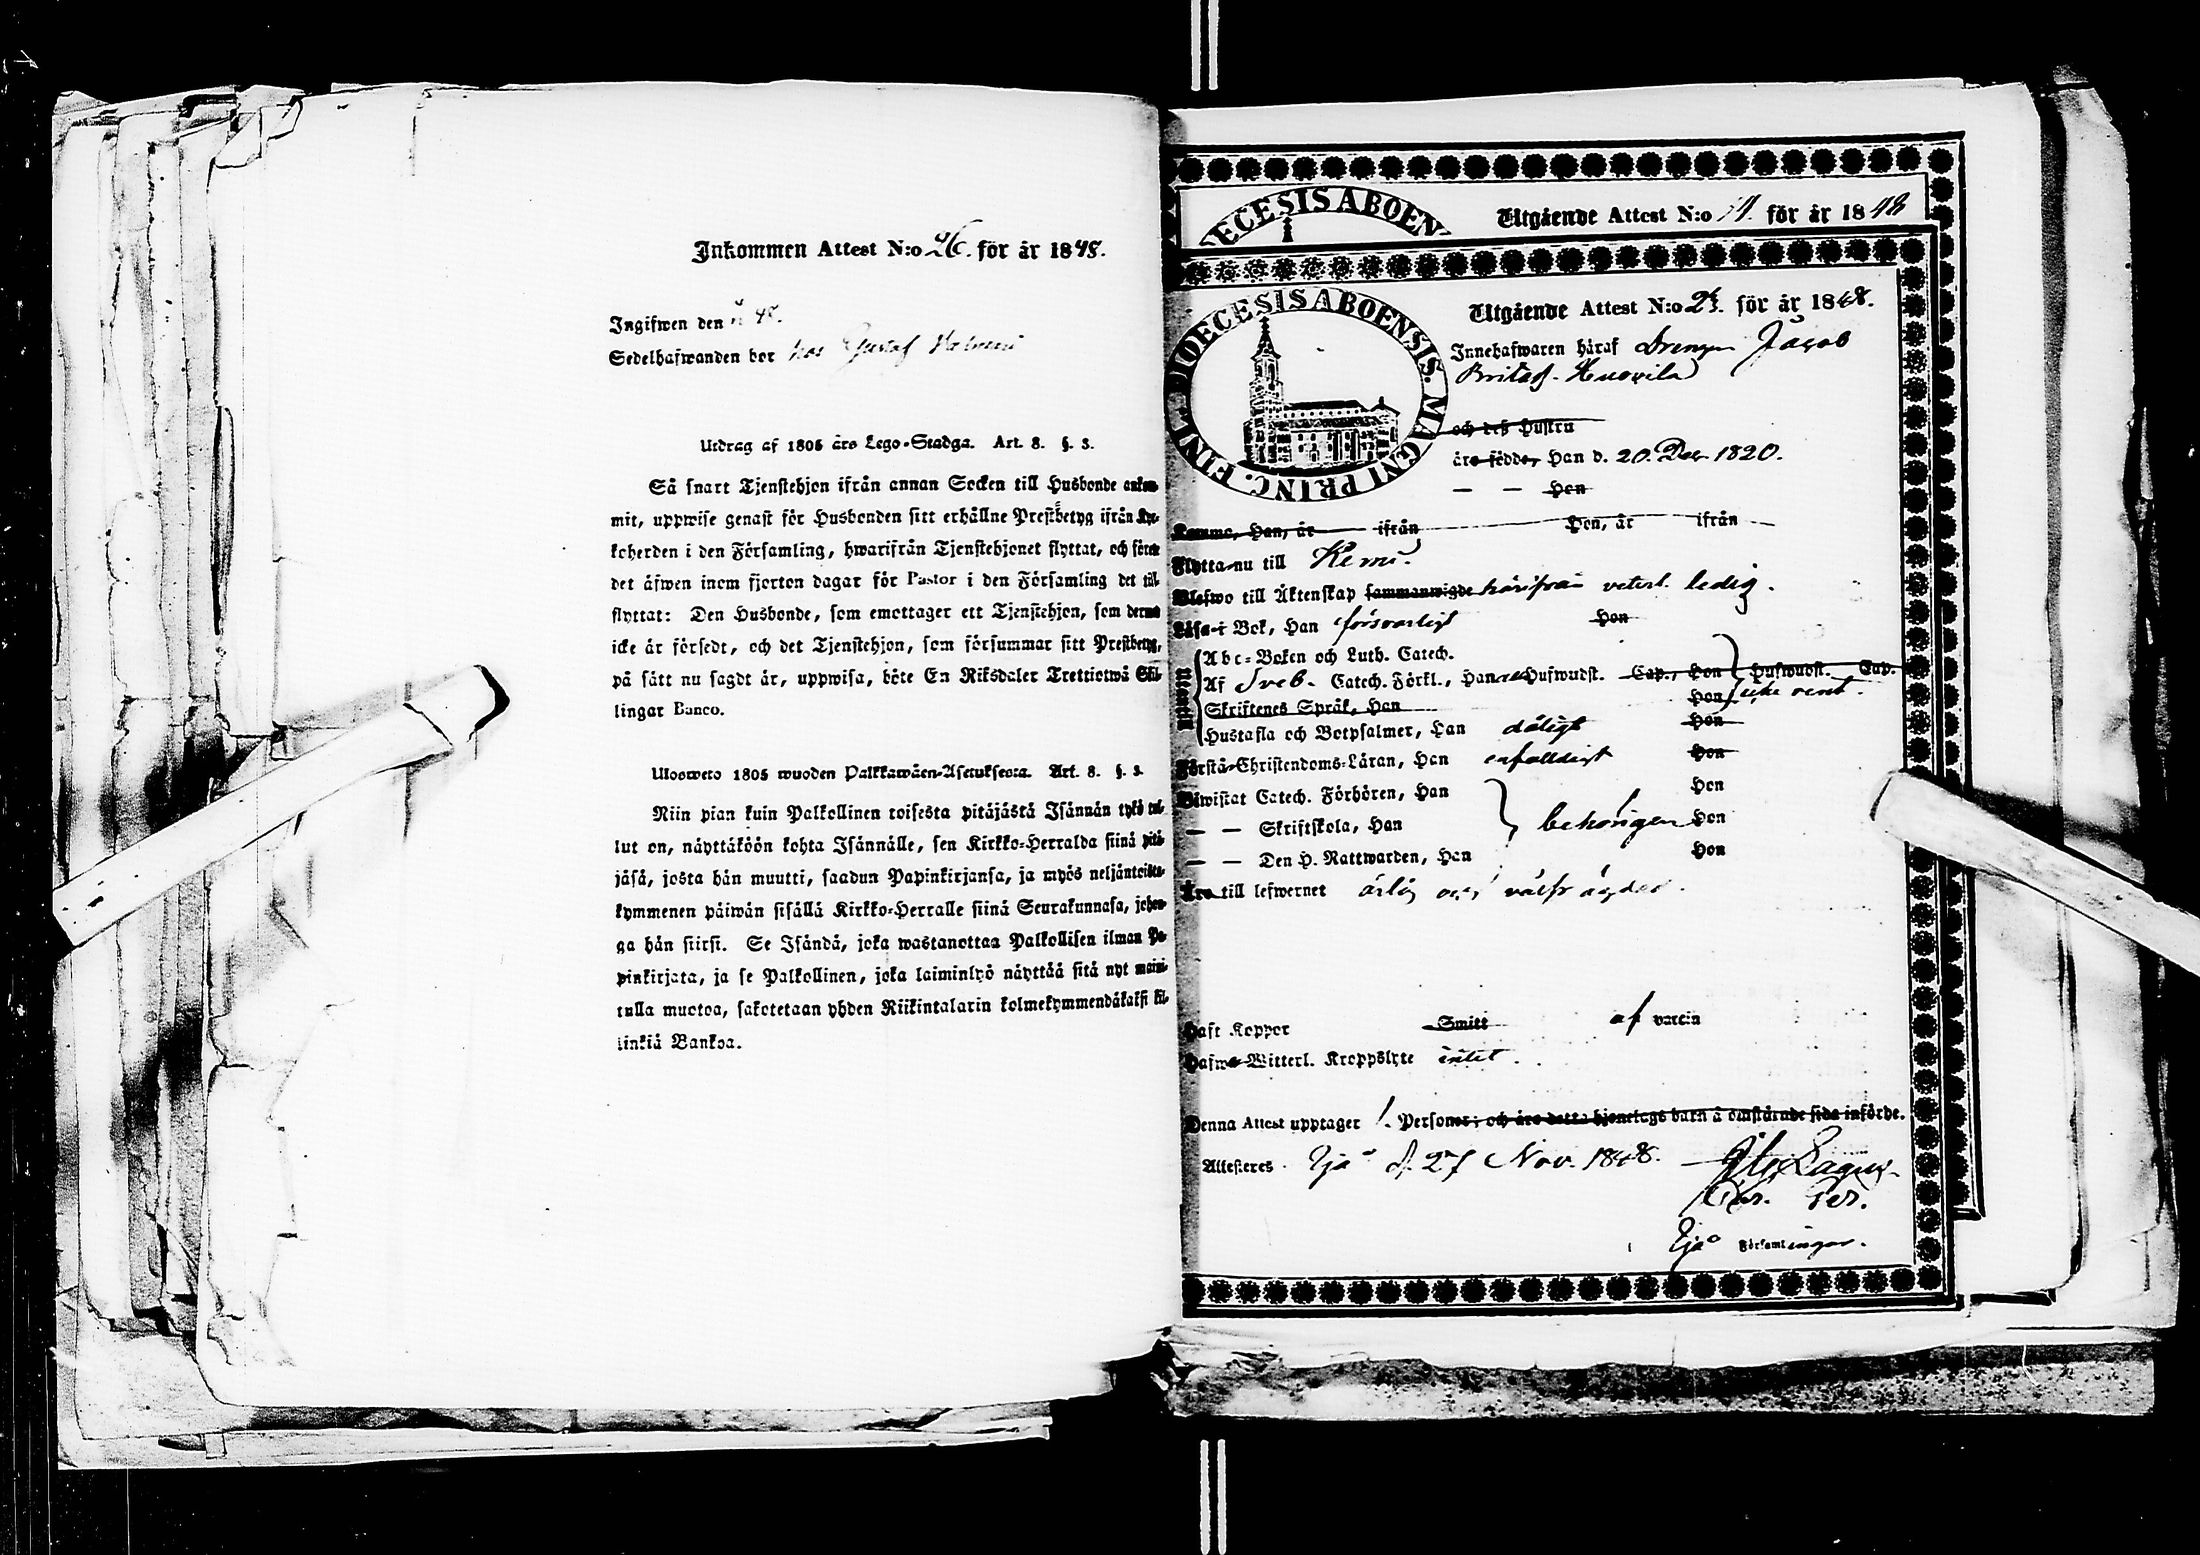 Inkommen Attest N:o 26. för år 1848.
Ingifwen den
Sedelhafwanden bor hos Gustaf
Utdrag af 1805 års Lego-Stadga. Art. 8. §. 3.
Så snart Tjenstehjon ifrån annan Socken till Husbonde ankom-
mit, uppwise genast för Husbonden sitt erhållne Prestbetyg ifrån Kyr-
koherden i den Församling, hwarifrån Tjenstehjonet flyttat, och förete
det äfwen inom fjorton dagar för Pastor i den Församling det till-
flyttat: Den Husbonde, som emottager ett Tjenstehjon, som dermed
icke är försedt, och det Tjenstehjon, som försummar sitt Prestbetyg,
på sätt nu sagdt är, uppwisa, böte En Riksdaler Trettiotwå Skil-
lingar Banco.
Ulosweto 1805 wuoden Palkkawäen-Asetuksesta. Art. 8. §. 3.
Niin pian kuin Palkollinen toisesta pitäjästä Isännän tykö tul-
lut on, näyttäköön kohta Isännälle, sen Kirkko-Herralda siinä pitä-
jäsä, josta hän muutti, saadun Papinkirjansa, ja myös neljäntoista-
kymmenen päiwän sisällä Kirkko-Herralle siinä Seurakunnasa, johon-
ga hän siirsi. Se Isändä, joka wastanottaa Palkollisen ilman Pa-
pinkirjata, ja se Palkollinen, joka laiminlyö näyttää sitä nyt maini-
tulla muotoa, sakotetaan yhden Riikintalarin kolmekymmendäkaksi kil-
linkiä Bankoa.
ECESIS ABOEN
Utgående Attest N:o 14. för år 1848
DIOECESIS ABOENSIS. MAGNI PRINC. FINL.
Utgående Attest N:o 23. för år 1848.
Innehafwaren häraf Drengen Jacob
Britas. Knovila
och deß Hustru
äro födde, Han d. 20. Dec. 1820.
— — Hon
Komme, Han, år ifrån Hon, år ifrån
Flytta nu till Kemi.
Blefwo till Äktenskap sammanwigde härifrån veterl. ledig.
Läsa i Bok, Han försvarligt Hon
Utantill
Abc-Boken och Luth. Catech.
Af Sveb. Catech. Förkl., Han Hufwudst. Cap., Hon Hufwudst. Cap.
Skriftenes Språk, Han Hon
Hustafla och Botpsalmer, Han dåligt Hon
Förstå Christendoms-Läran, Han enfalldigt Hon
Biwistat Catech. Förhören, Han Hon
— — Skriftskola, Han behörigen Hon
— — Den H. Nattwarden, Han Hon
Äro till lefwernet ärlig och
Haft Koppor Smitt af vaccin
Hafwa Witterl. Kroppslyte intet.
Denna Attest upptager 1. Personer; och äro detta hjonelags barn å omstående sida införde.
Attesteres Eja d. 27 Nov. 1848. Lagus
Församlingar.